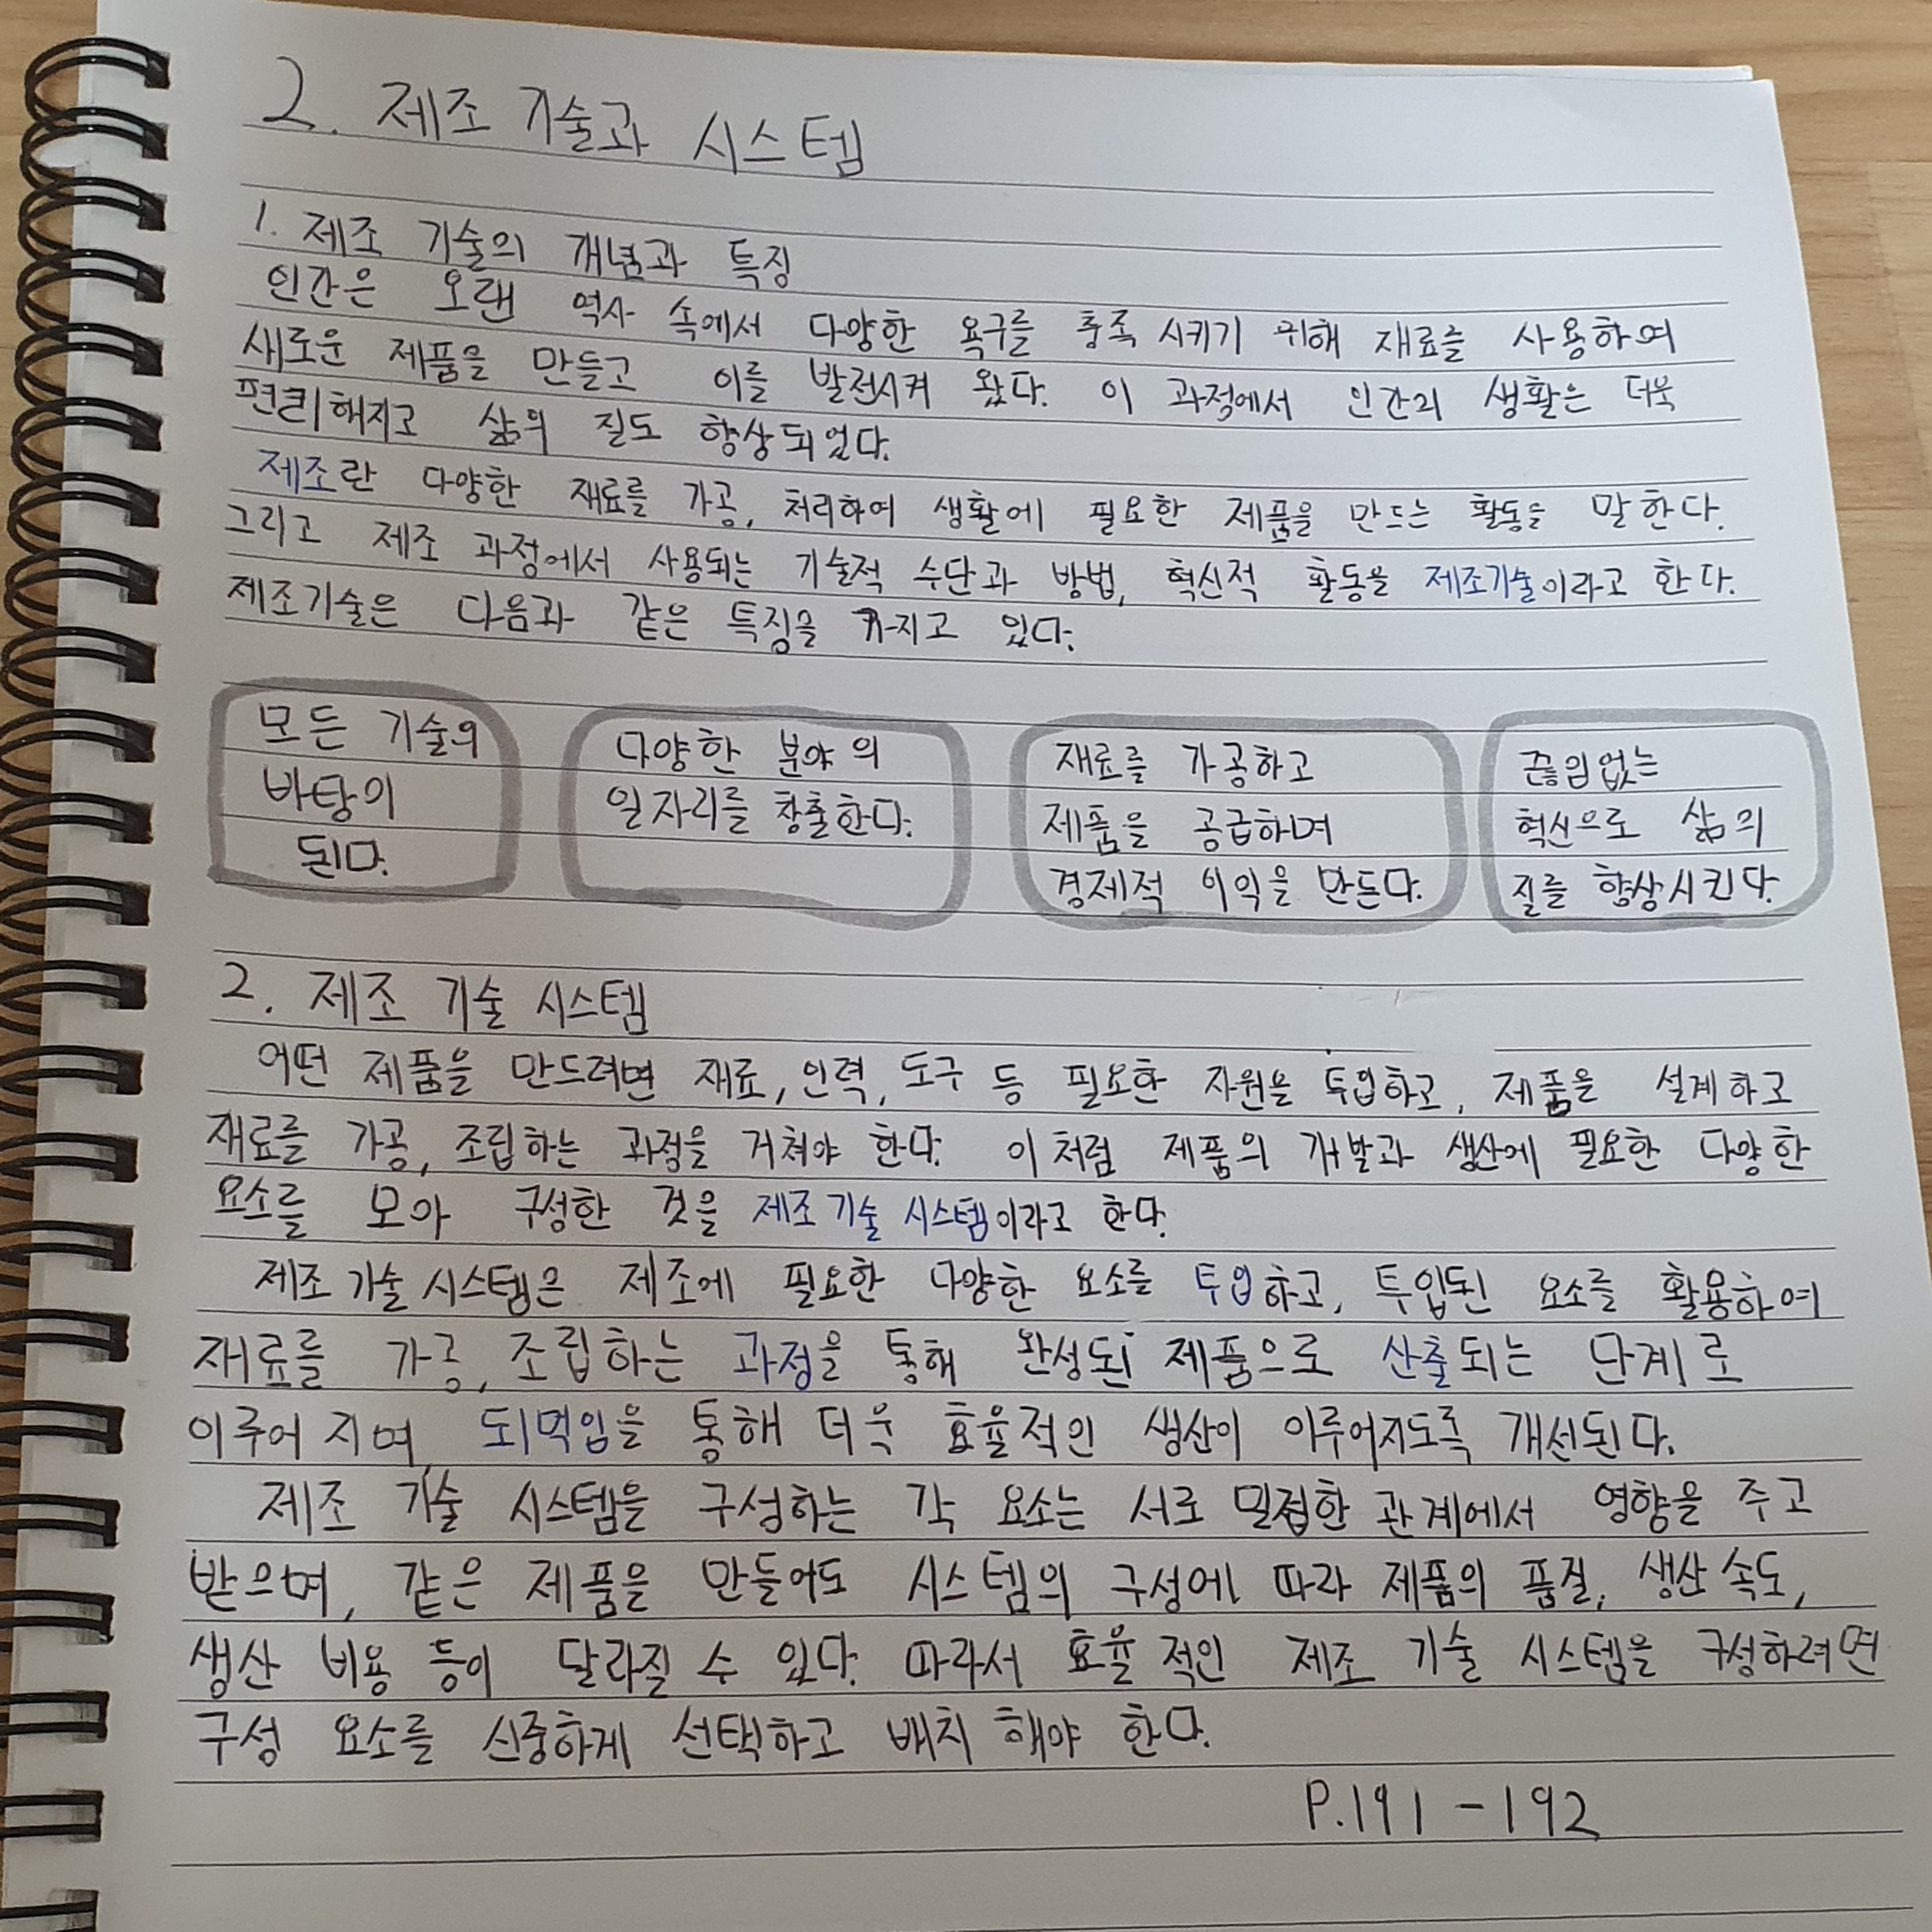 2. 제조 기술과 시스템
1. 제조 기술의 개념과 특징
인간은 오랜 역사 속에서 다양한 욕구를 충족 시키기 위해 재료를 사용하여
새로운 제품을 만들고 이를 발전시켜 왔다. 이 과정에서 인간의 생활은 더욱
편리해지고 삶의 질도 향상되었다.
제조란 다양한 재료를 가공, 처리하여 생활에 필요한 제품을 만드는 활동을 말한다.
그리고 제조 과정에서 사용되는 기술적 수단과 방법, 혁신적 활동을 제조기술이라고 한다.
제조기술은 다음과 같은 특징을 가지고 있다.
모든 기술의
바탕이
된다.
다양한 분야의
일자리를 창출한다.
재료를 가공하고
제품을 공급하며
경제적 이익을 만든다.
끊임없는
혁신으로 삶의
질을 향상시킨다.
2. 제조 기술 시스템
어떤 제품을 만드려면 재료, 인력, 도구 등 필요한 자원을 투입하고, 제품을 설계하고
재료를 가공, 조립하는 과정을 거쳐야 한다. 이처럼 제품의 개발과 생산에 필요한 다양한
요소를 모아 구성한 것을 제조 기술 시스템이라고 한다.
제조 기술 시스템은 제조에 필요한 다양한 요소를 투입하고, 투입된 요소를 활용하여
재료를 가공, 조립하는 과정을 통해 완성된 제품으로 산출되는 단계로
이루어 지며, 되먹임을 통해 더욱 효율적인 생산이 이루어지도록 개선된다.
제조 기술 시스템을 구성하는 각 요소는 서로 밀접한 관계에서 영향을 주고
받으며, 같은 제품을 만들어도 시스템의 구성에 따라 제품의 품질, 생산 속도,
생산 비용 등이 달라질 수 있다. 따라서 효율적인 제조 기술 시스템을 구성하려면
구성 요소를 신중하게 선택하고 배치 해야 한다.
P.191-192